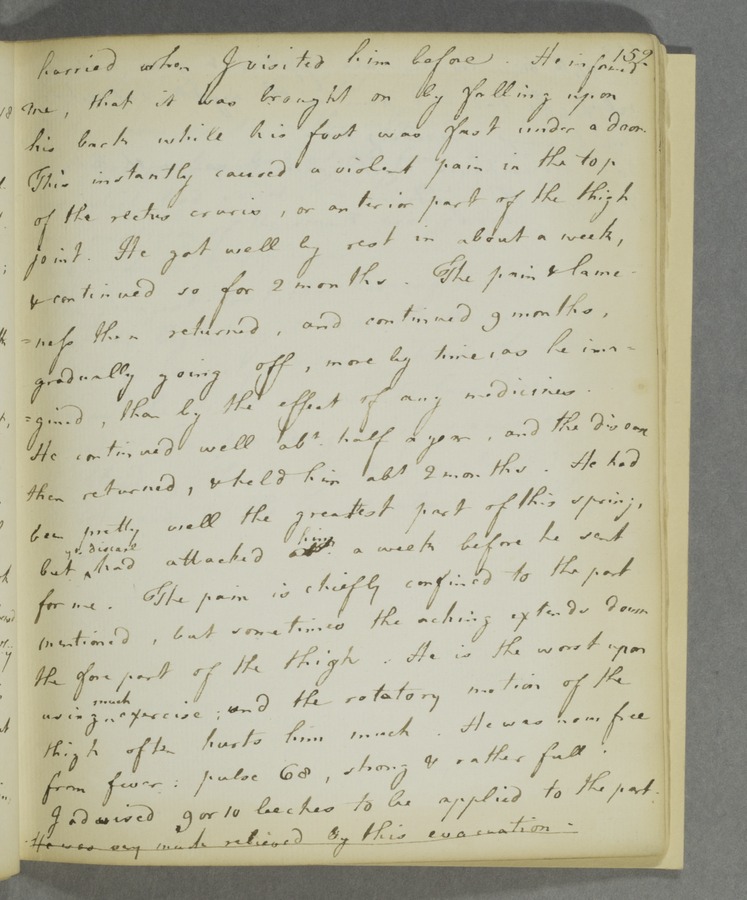 159
hurried when I visited him before. He informd
me, that it was brought on by falling upon
his back while his foot was fast under a door.
This instantly caused a violent pain in the top
of the rectus cruris, or anterior part of the thigh
joint. He got well by rest in about a week,
& continued so for 2 months. The pain & lame-
=ness then returned, and continued 9 months,
gradually going off, more by time as he ima-
=gined, than by the effect of any medicines.
He continued well abt. half a year, and the disease
then returned, & held him abt 2 months. He had
been pretty well the greatest part of this spring,
but ye. disease had attacked him a week before he sent
for me. The pain is chiefly confined to the part
mentioned, but sometimes the aching extends down
the fore part of the thigh. He is the worst upon
using much exercise; and the rotatory motion of the
thigh often hurts him much. He was now free
from fever: pulse 68, strong & rather full.
I advised 9 or 10 leeches to be applied to the part.
He was very much relieved by this evacuation.